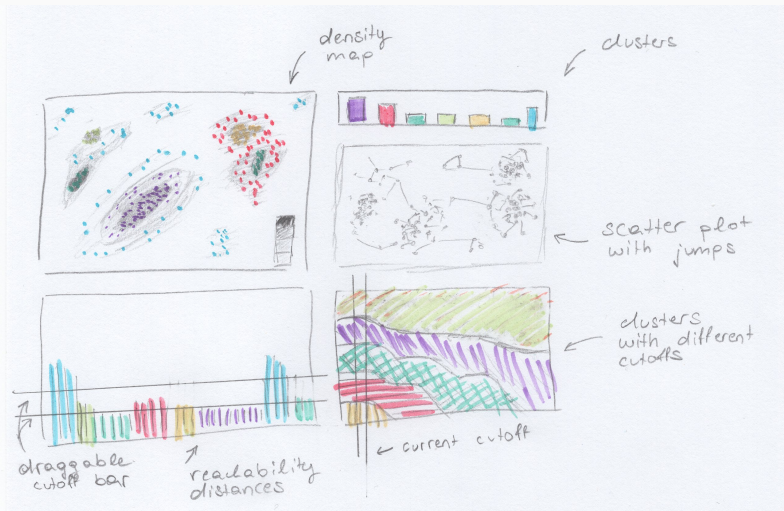 density
map
clusters
scatter plot
with jumps
clusters
with different
cutoffs
current cutoff
draggable
cutoff bar
reachability
distances